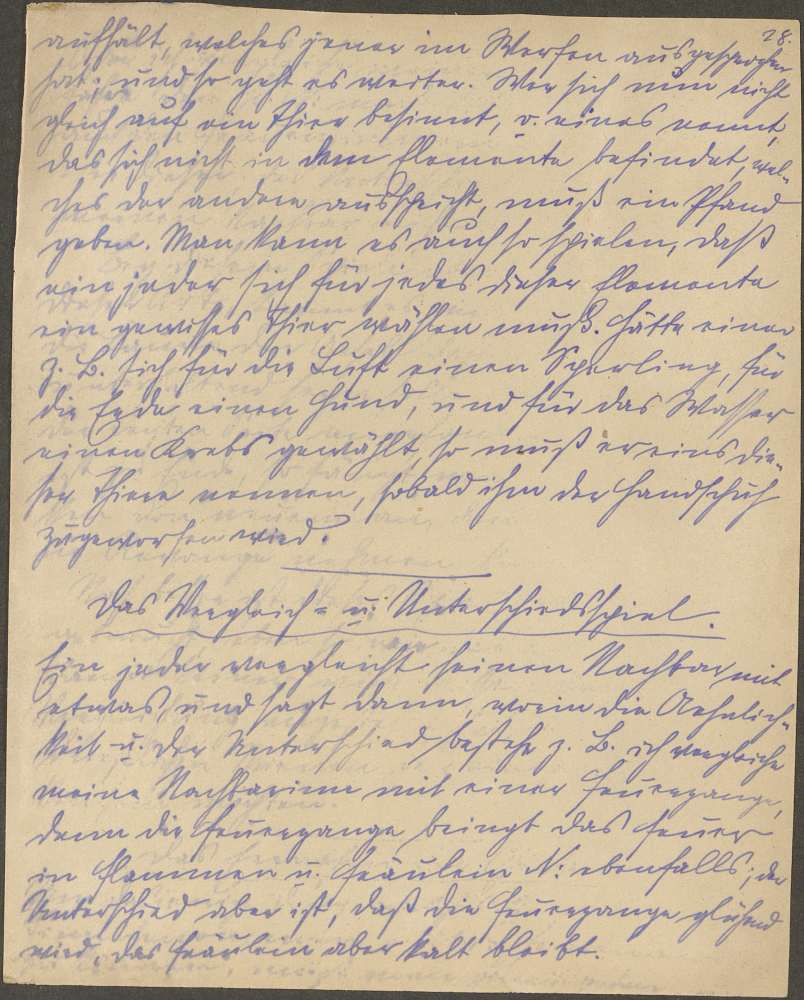 28.
aufhält, welches jener im Werfen ausgesprochen
hat; und so geht es weiter. Wer sich nun nicht
gleich auf ein Thier besinnt, o. eines nennt,
das sich nicht in dem Elemente befindet, wel-
ches der andere ausspricht, muß ein Pfand
geben. Man kann es auch so spielen, daß
ein jeder sich für jedes dieser Elemente
ein gewisses Thier wählen muß. Hätte einer
z. B. sich für die Luft einen Sperling, für
die Erde einen Hund, und für das Wasser
einen Krebs gewählt, so muß er eins die-
ser Thiere nennen, sobald ihm der Handschuh
zugeworfen wird.
Das Vergleich- u. Unterschiedsspiel.
Ein jeder vergleicht seinen Nachbar mit
etwas, und sagt dann, worin die Aehnlich-
keit u. der Unterschied bestehe z. B. ich vergleiche
meine Nachbarinn mit einer Feuerzange,
denn die Feuerzange bringt das Feuer
in Flammen u. Fräulein N: ebenfalls; der
Unterschied aber ist, daß die Feuerzange glühend
wird, das Fräulein aber kalt bleibt.